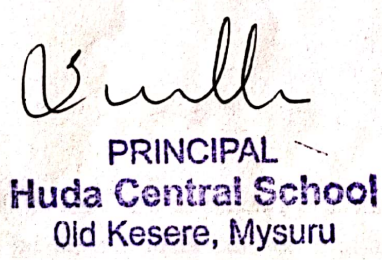 PRINCIPAL
Huda Central School
Old Kesere, Mysuru